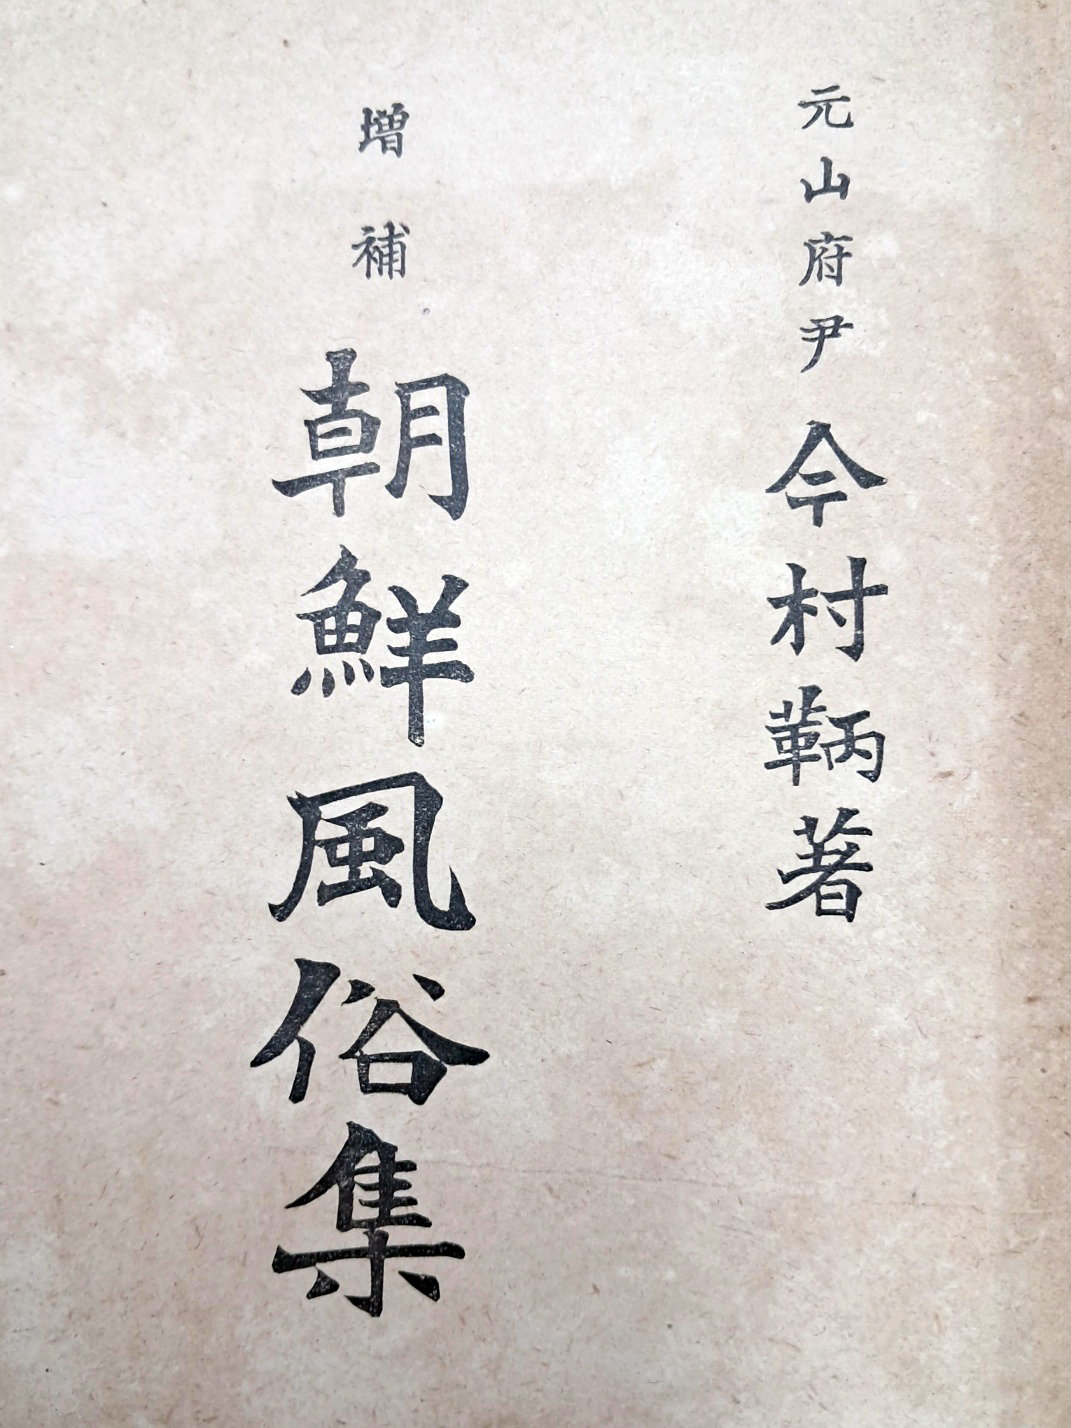 元山府尹 今村鞆著
増補 朝鮮風俗集